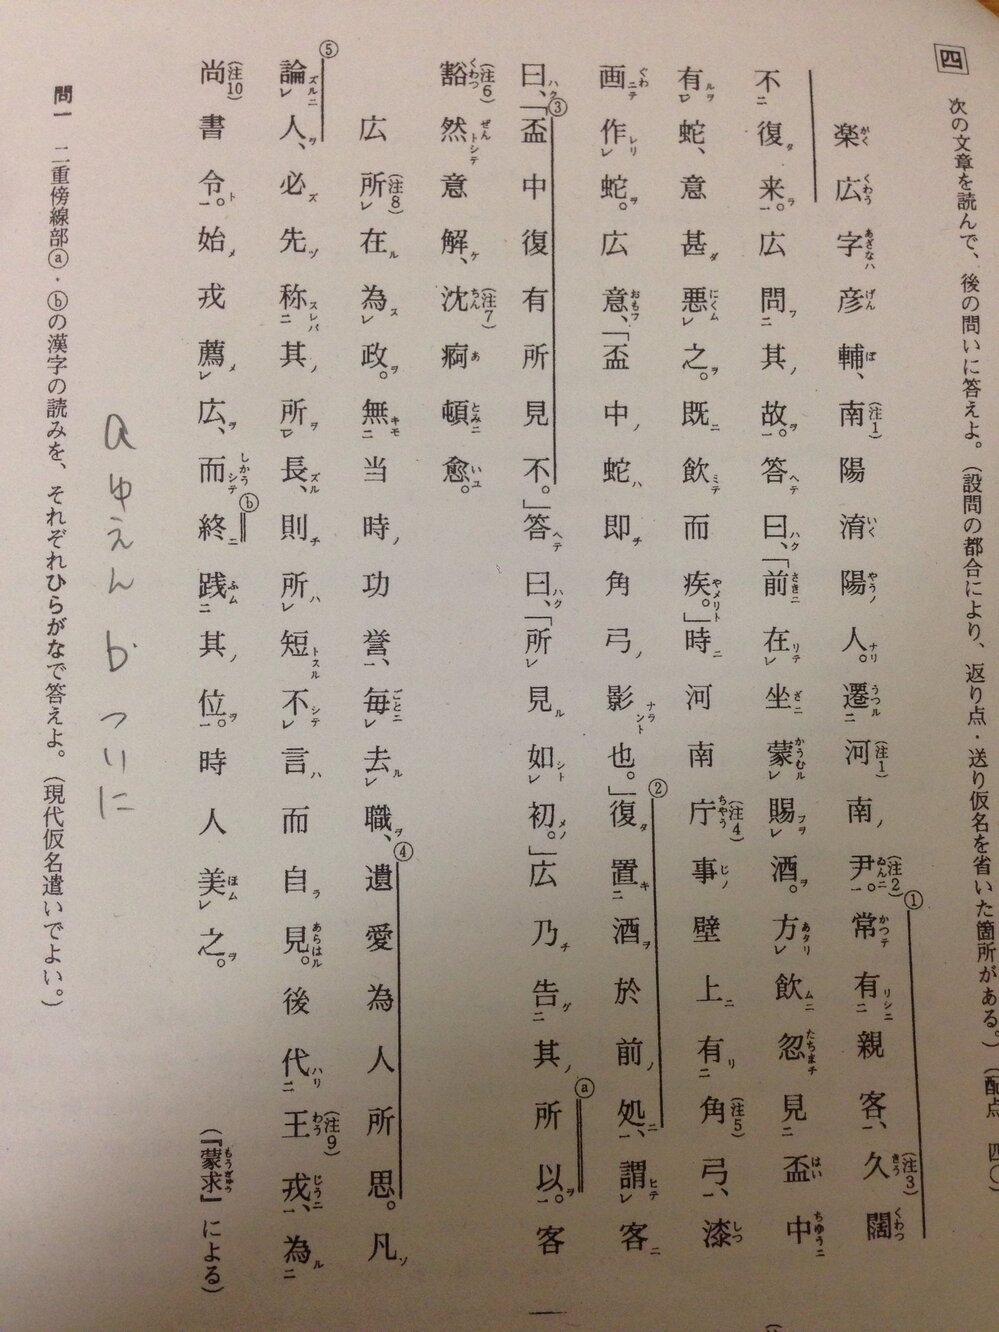 四 次の文章を読んで、後の問いに答えよ。（設問の都合により、返り点・送り仮名を省いた箇所がある。）（配点 四〇）
楽広字彦輔、南陽淯陽人。遷河南尹。常有親客、久闊
不復来。広問其故。答曰、「前在坐蒙賜酒。方飲忽見盃中
有蛇、意甚悪之。既飲而疾。」時河南庁事壁上有角弓、漆
画作蛇。広意、「盃中蛇即角弓影也。」復置酒於前処、謂客
曰、「盃中復有所見不。」答曰、「所見如初。」広乃告其所以。客
豁然意解、沈痾頓愈。
広所在為政。無当時功誉、毎去職、遺愛為人所思。凡
論人、必先称其所長、則所短不言而自見。後代王戎、為
尚書令。始戎薦広、而終践其位。時人美之。
（『蒙求』による）
問一 二重傍線部ⓐ・ⓑの漢字の読みを、それぞれひらがなで答えよ。（現代仮名遣いでよい。）
a ゆえん b ついに